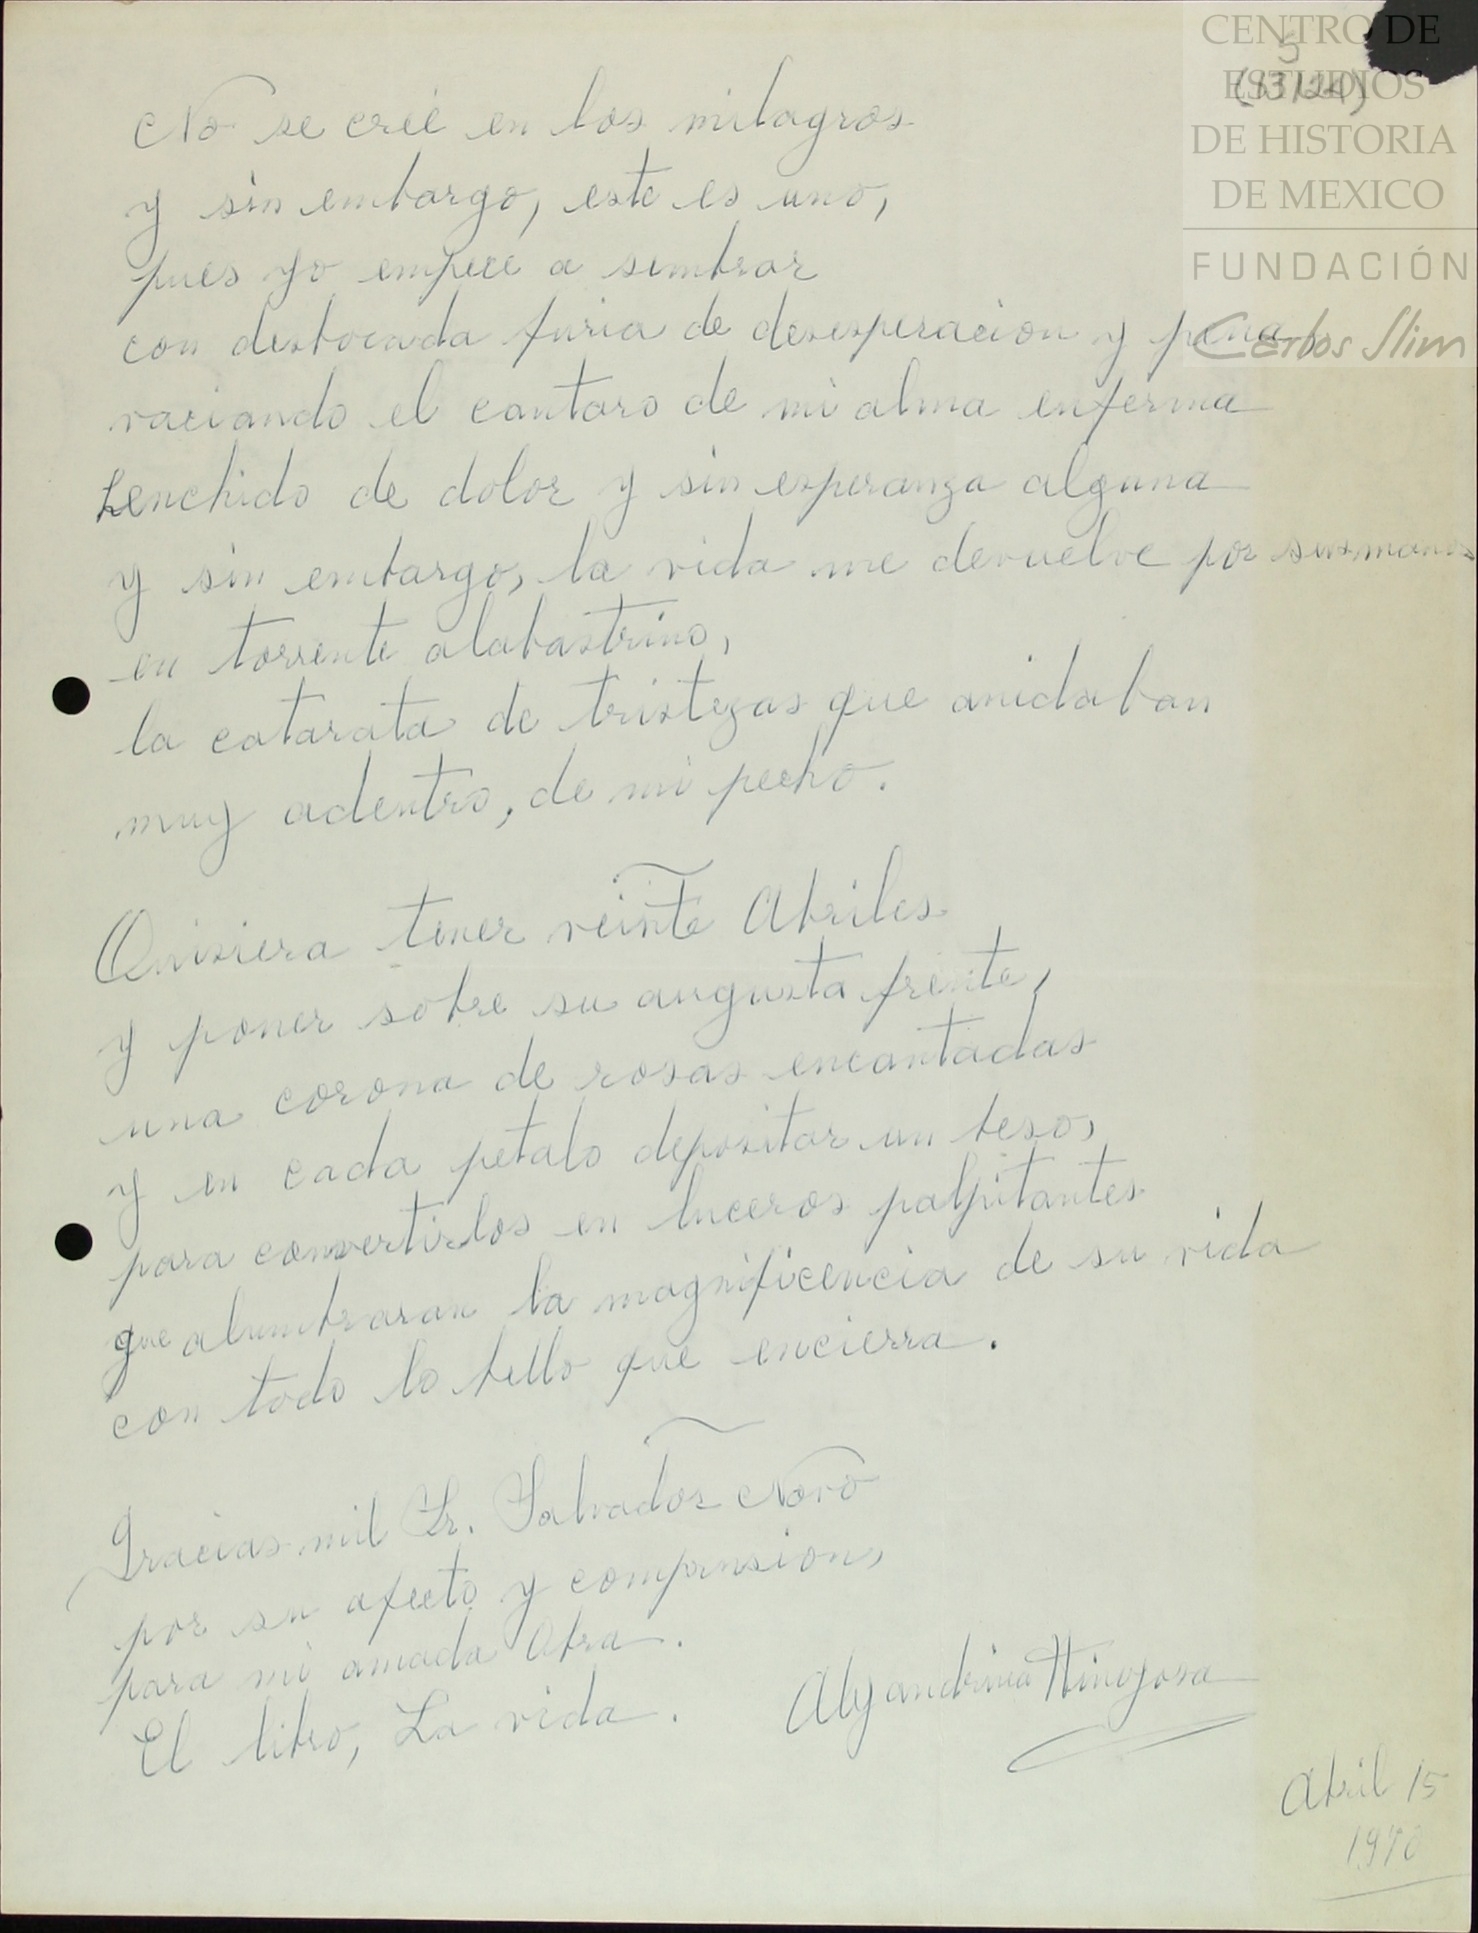 CENTRO DE
ESTUDIOS
DE HISTORIA
DE MEXICO
FUNDACIÓN
Carlos Slim
5
No se crée en los milagros
y sin embargo, este es uno,
pues yo empecé a sembrar
con desbocada furia de desesperacion y pena,
vaciando el cantaro de mi alma enferma
henchido de dolor y sin esperanza alguna
y sin embargo, la vida me devuelve por sus manos
en torrente alabastrino,
la catarata de tristezas que anidaban
muy adentro, de mi pecho.
Quisiera tener veinte Abriles
y poner sobre su augusta frente,
una corona de rosas encantadas
y en cada petalo depositar un beso,
para convertirlos en luceros palpitantes
que alumbraran la magnificencia de su vida
con todo lo bello que encierra.
Gracias mil Sr. Salvador Novo
por su afecto y comprension,
para mi amada Obra.
El libro, La vida.
Alejandrina Hinojosa
Abril 15
1970